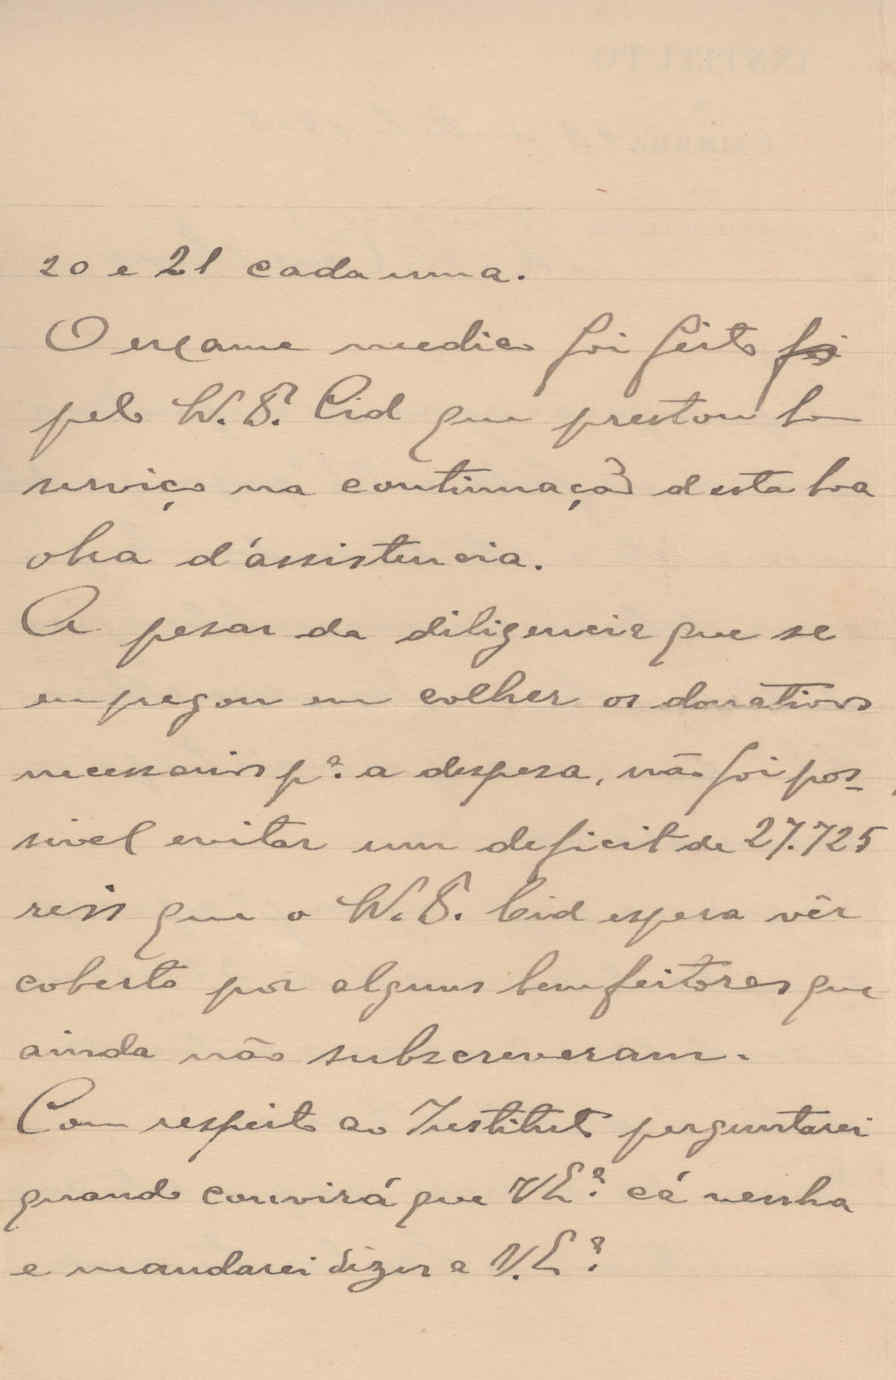 20 e 21 cada uma.
O exame medico foi feito foi
pelo W. S.r Cid que prestou bom
serviço na continuação desta boa
obra d'assistencia.
A pesar da diligencia que se
empregou em colher os donativos
necessarios p.ª a despesa, não foi pos-
sivel evitar um deficit de 27.725
reis que o W. S. Cid espera vêr
coberto por alguns bemfeitores que
ainda não subscreveram.
Com respeito ao Instituto perguntarei
quando convirá que V E.ª cá venha
e mandarei dizer a V. E.ª